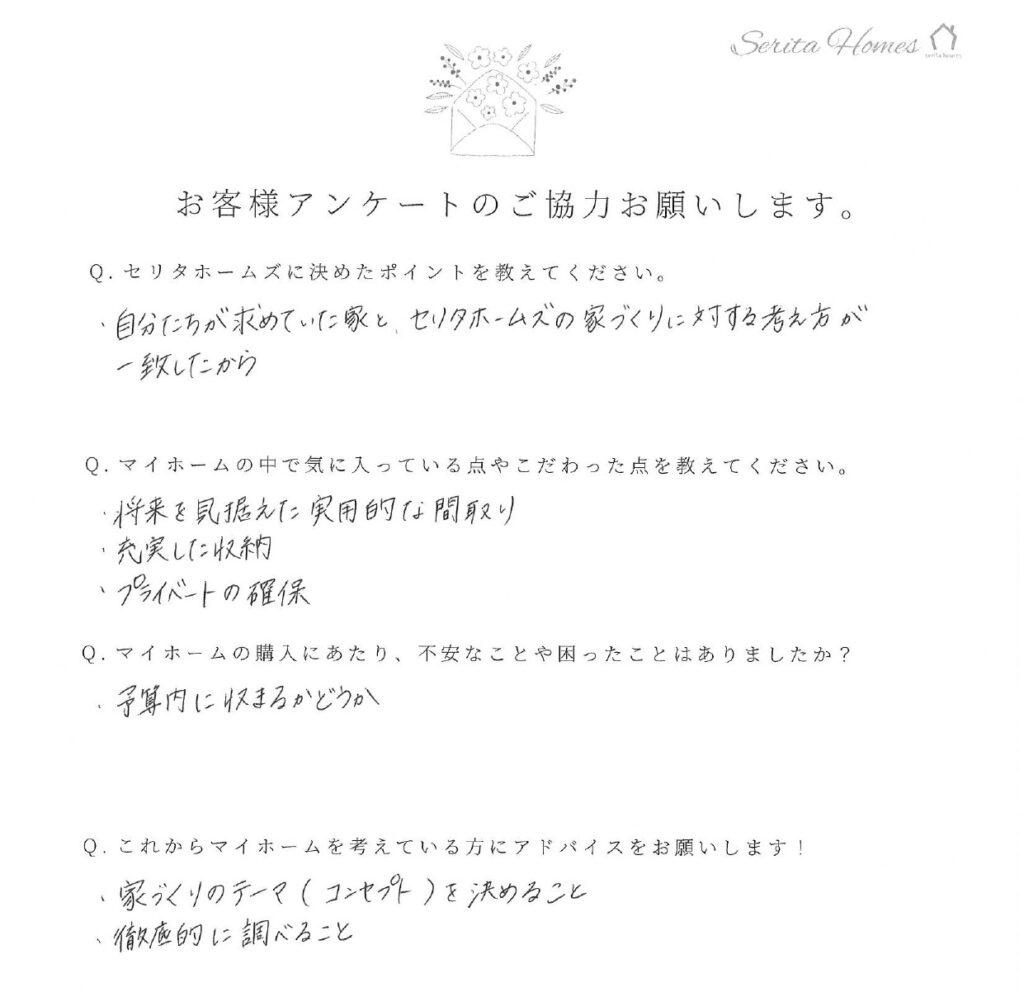 Serita Homes
serita homes
お客様アンケートのご協力お願いします。
Q. セリタホームズに決めたポイントを教えてください。
・自分たちが求めていた家と、セリタホームズの家づくりに対する考え方が
一致したから
Q. マイホームの中で気に入っている点やこだわった点を教えてください。
・将来を見据えた実用的な間取り
・充実した収納
・プライベートの確保
Q. マイホームの購入にあたり、不安なことや困ったことはありましたか？
・予算内に収まるかどうか
Q. これからマイホームを考えている方にアドバイスをお願いします！
・家づくりのテーマ(コンセプト)を決めること
・徹底的に調べること